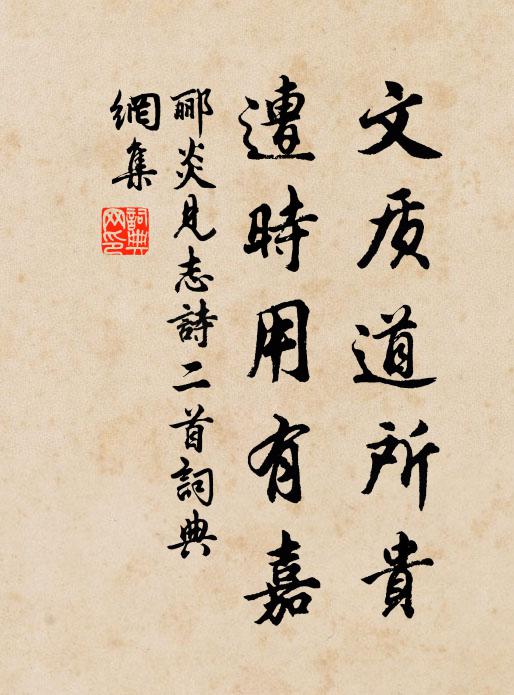 文质道所貴
遭時用有嘉
酈炎見志詩二首詞典
網集
詞典網印